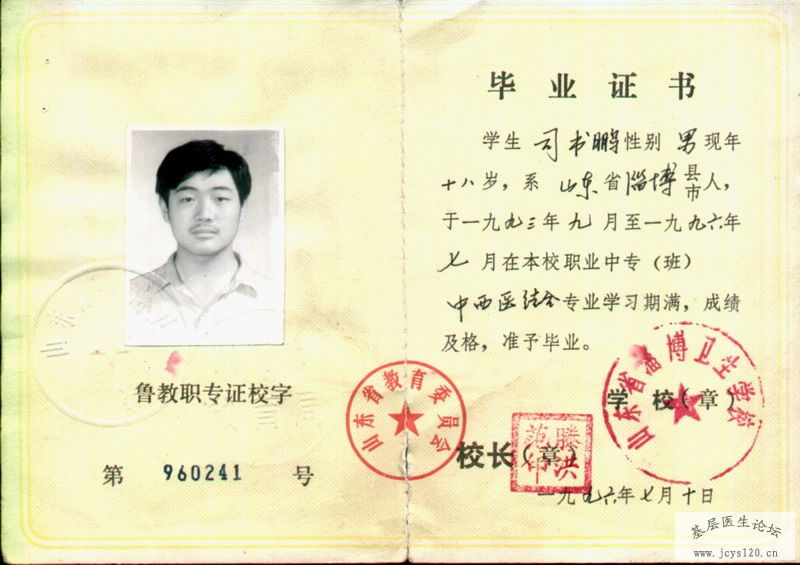 鲁教职专证校字
第 960241 号
山东省教育委员会
毕业证书
学生 司书鹏 性别 男 现年
十八岁，系 山东省淄博县市人，
于一九九三年九月至一九九六年
七月在本校职业中专（班）
中西医结合专业学习期满，成绩
及格，准予毕业。
学校（章）
山东省淄博卫生学校
校长（章）
滕洪范印
一九九六年七月十日
基层医生论坛
www.jcys120.cn